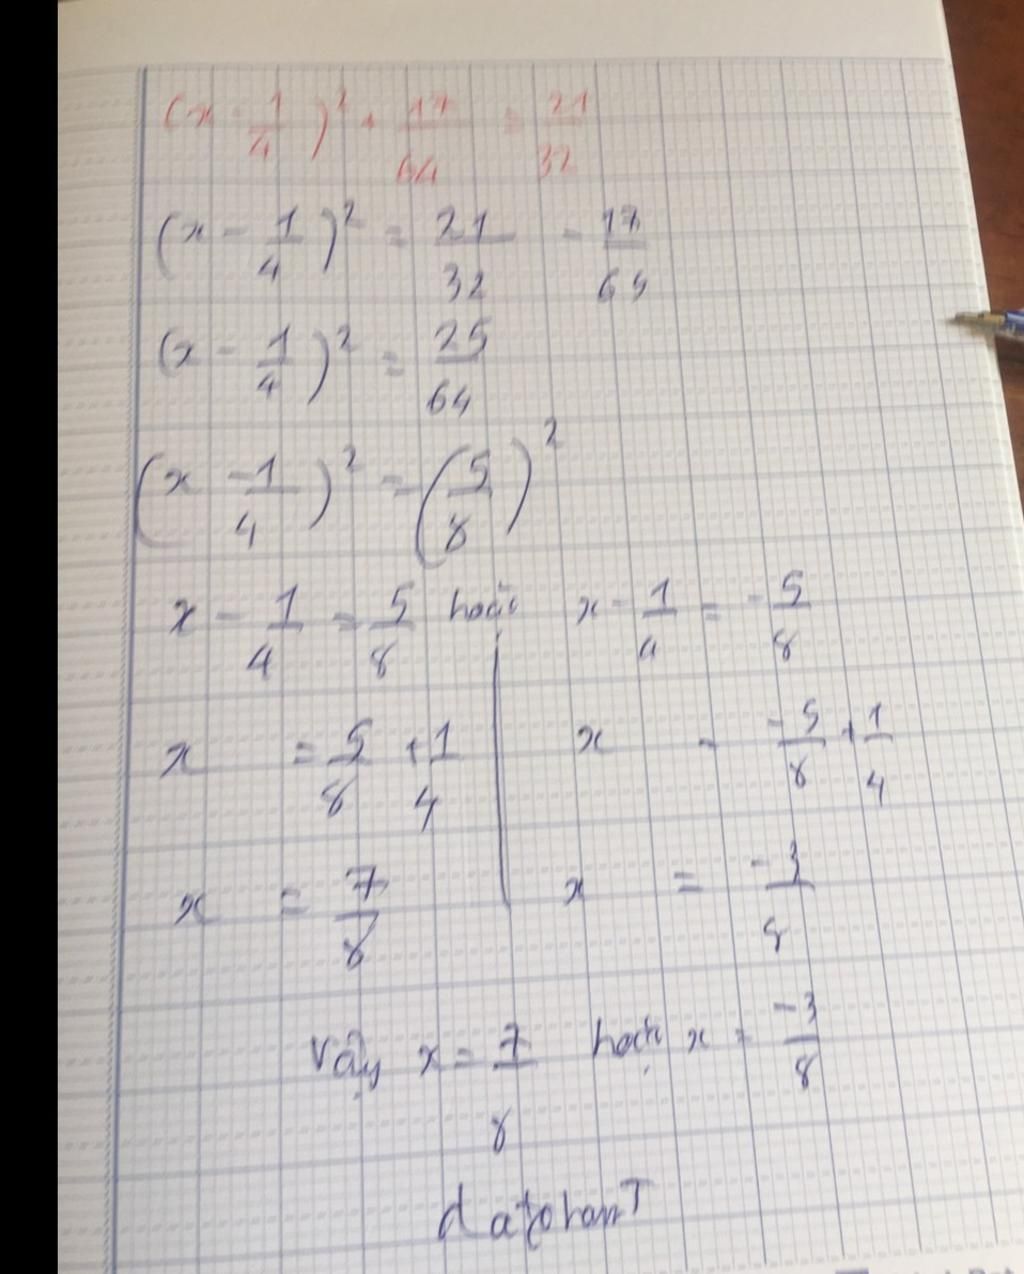 (x - 1/4)² + 17/64 = 21/32
(x - 1/4)² = 21/32 - 17/64
(x - 1/4)² = 25/64
(x - 1/4)² = (5/8)²
x - 1/4 = 5/8 hoặc x - 1/4 = -5/8
x = 5/8 + 1/4 x = -5/8 + 1/4
x = 7/8 x = -3/8
Vậy x = 7/8 hoặc x = -3/8